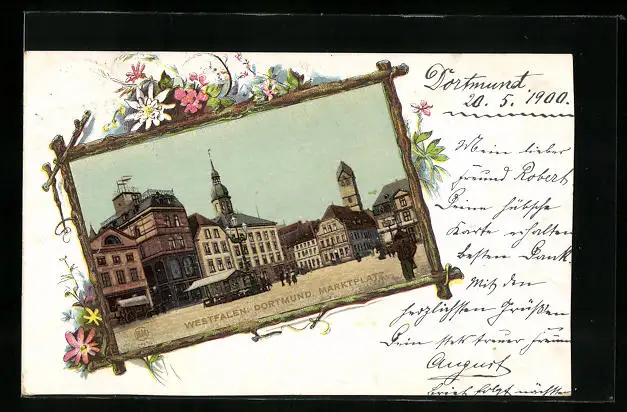 Dortmund
20. 5. 1900.
Mein lieber
Freund Robert
Deine hübsche
Karte erhalten
besten Dank
Mit den
herzlichsten Grüßen
Dein stets treuer Freund
August
Brief folgt nächstens
WESTFALEN: DORTMUND, MARKTPLATZ